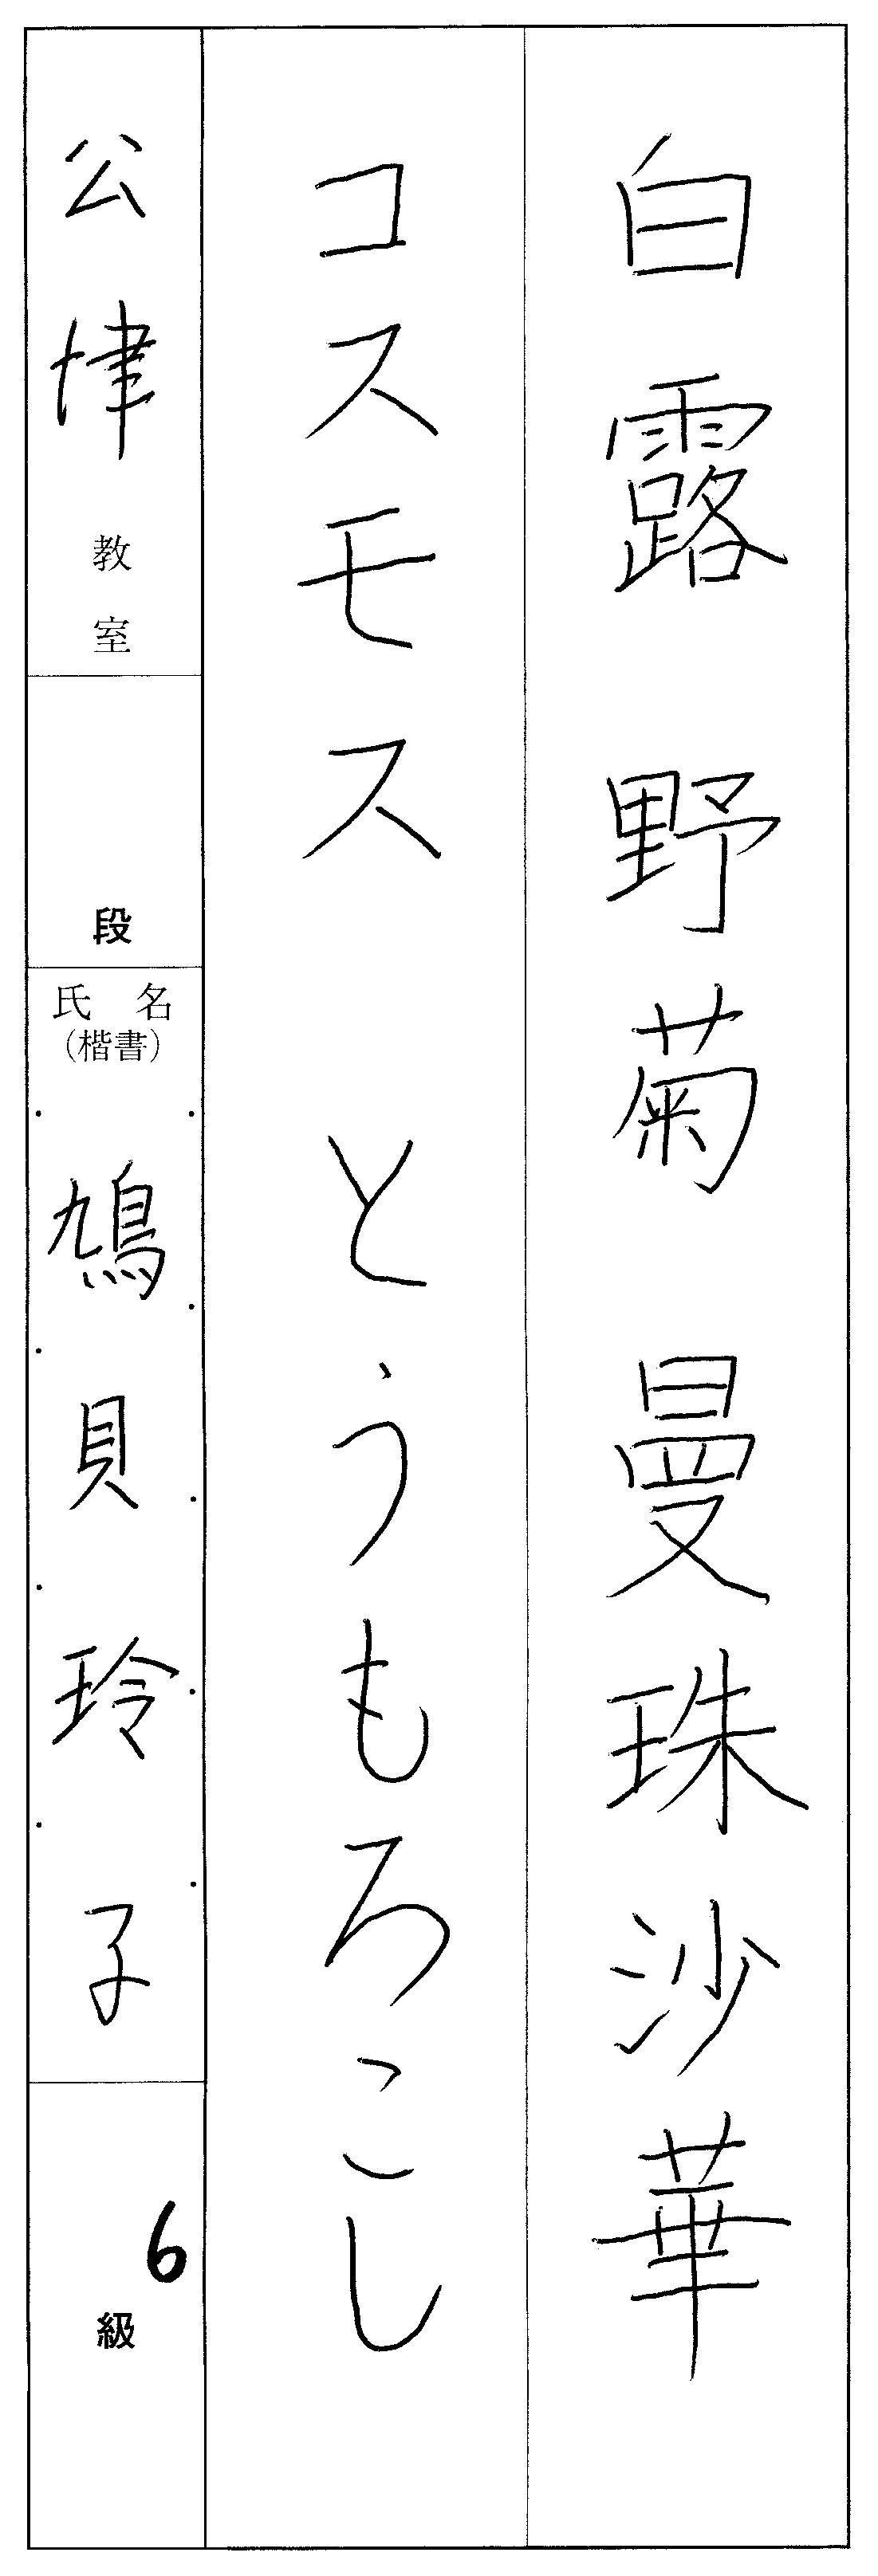 白露 野菊 曼珠沙華
コスモス とうもろこし
公津教室
段
氏名
(楷書)
鳩貝玲子
6級